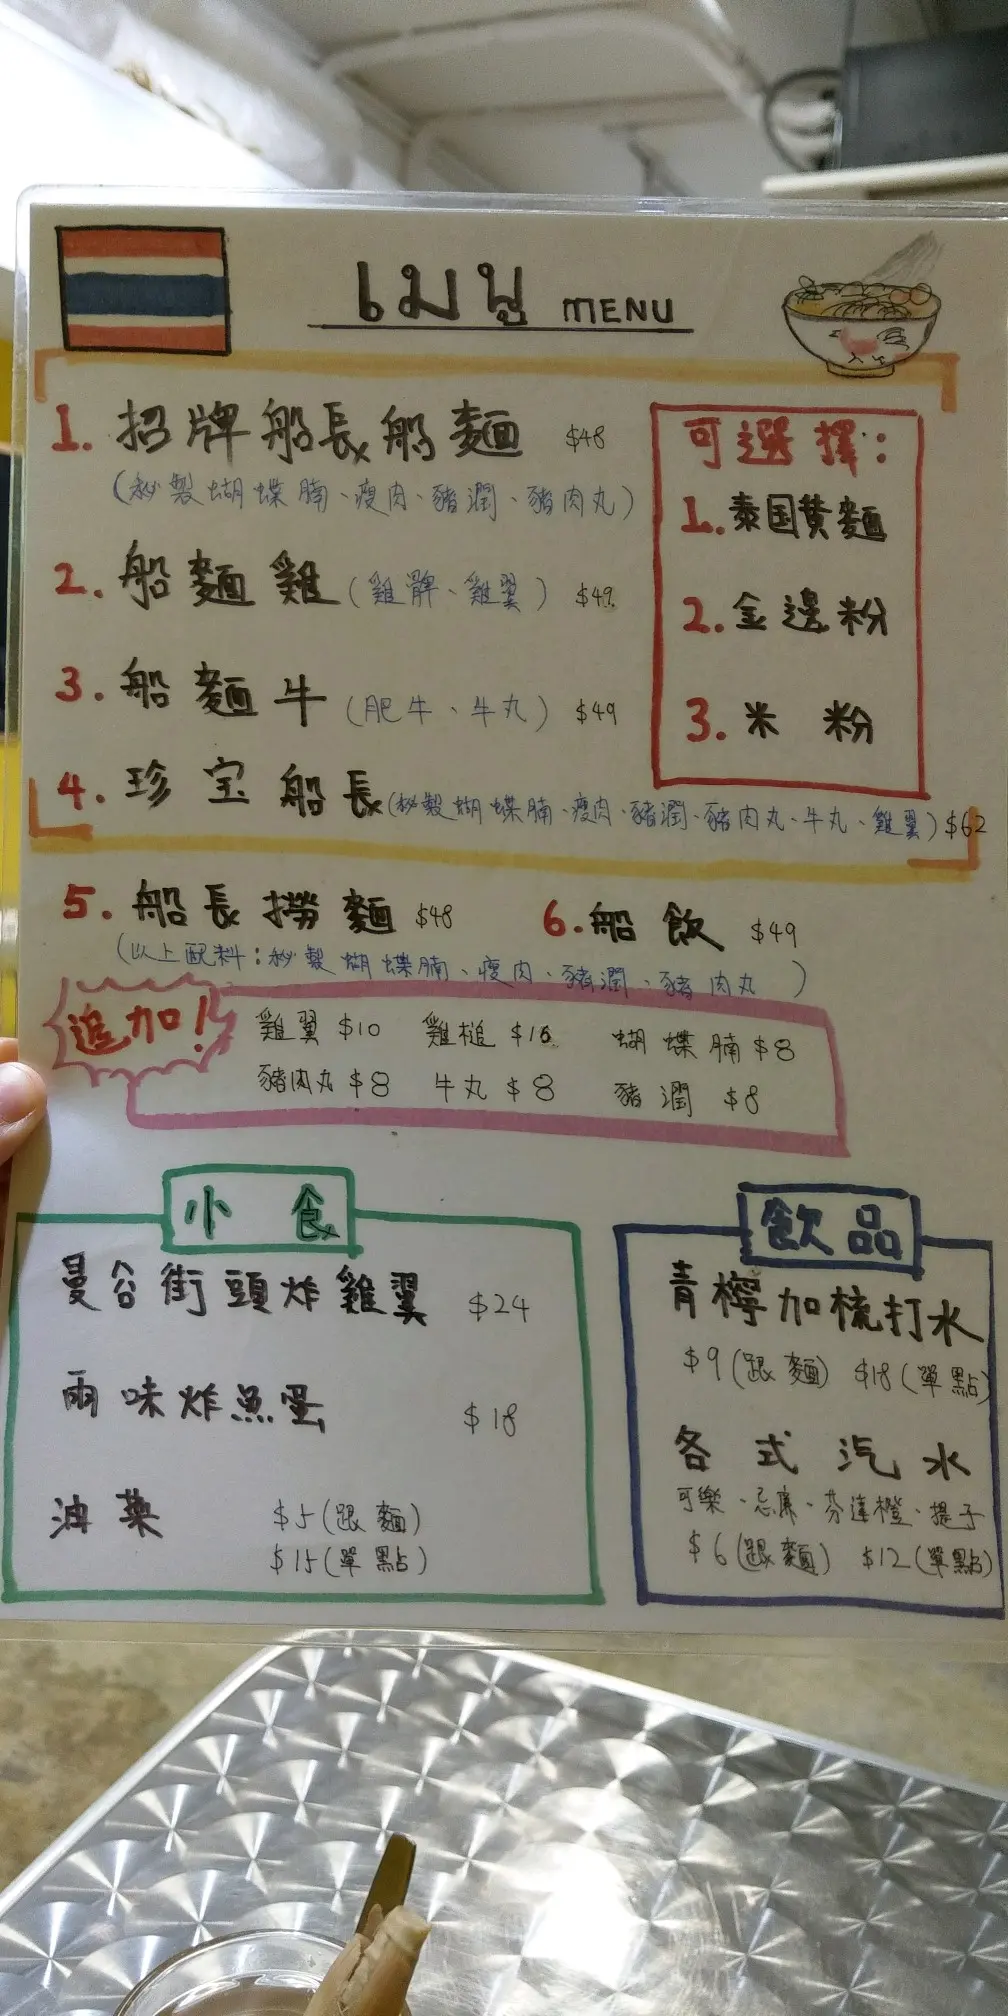 เมนู MENU
1. 招牌船長船麵 $48
(秘製蝴蝶腩、瘦肉、豬潤、豬肉丸)
2. 船麵雞 (雞髀、雞翼) $49
3. 船麵牛 (肥牛、牛丸) $49
4. 珍宝船長 (秘製蝴蝶腩、瘦肉、豬潤、豬肉丸、牛丸、雞翼) $62
可選擇:
1. 泰国黄麵
2. 金邊粉
3. 米粉
5. 船長撈麵 $48
6. 船飲 $49
(以上配料:秘製蝴蝶腩、瘦肉、豬潤、豬肉丸)
追加!
雞翼 $10 雞槌 $16 蝴蝶腩 $8
豬肉丸 $8 牛丸 $8 豬潤 $8
小食
曼谷街頭炸雞翼 $24
兩味炸魚蛋 $18
油菜 $5 (跟麵)
$15 (單點)
飲品
青檸加梳打水
$9 (跟麵) $18 (單點)
各式汽水
可樂、忌廉、芬達橙、提子
$6 (跟麵) $12 (單點)